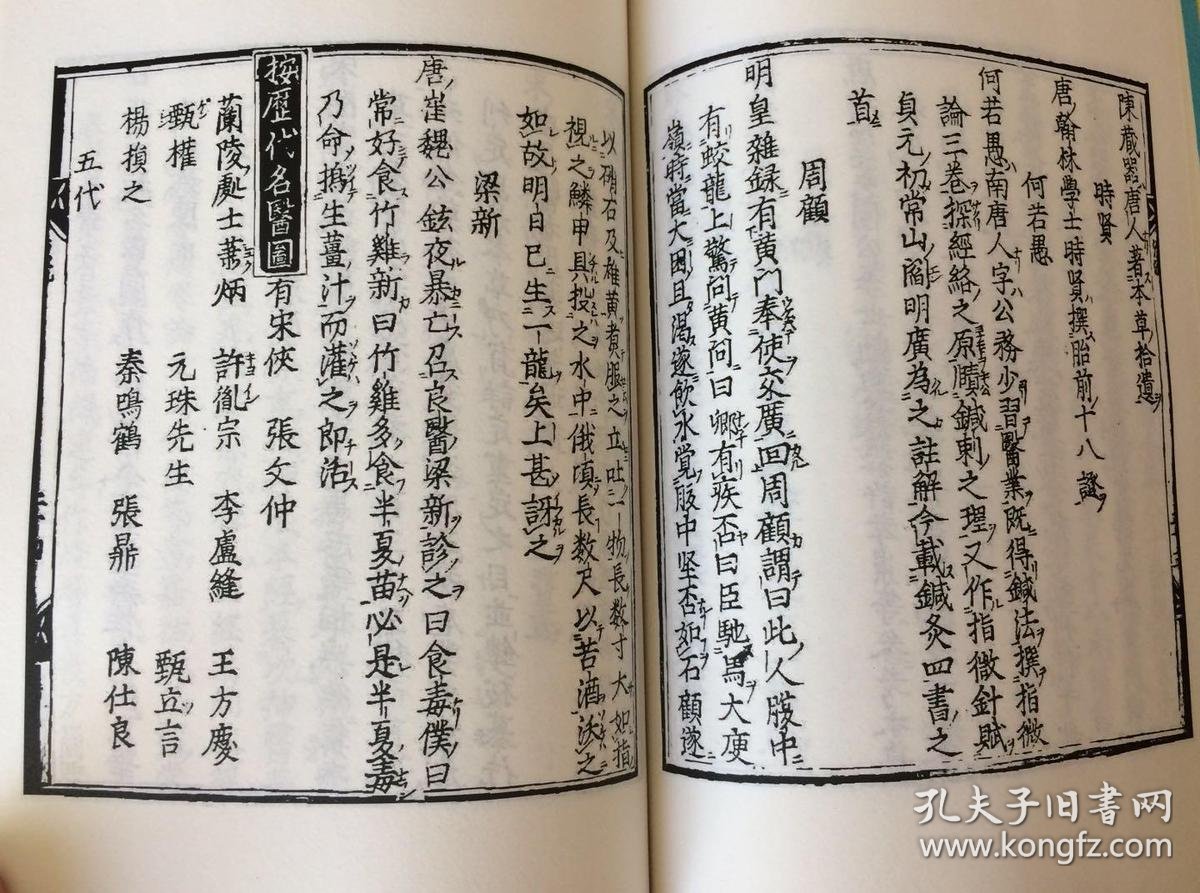 陳藏器唐人著本草拾遺
時賢
唐翰林學士時賢撰胎前十八證
何若愚
何若愚南唐人字公務少習醫業既得鍼法撰指微
論三卷探經絡之原賾鍼刺之理又作指微針賦
貞元初常山閻明廣為之註解今載鍼灸四書之
首
周顧
明皇雜録有黄門奉使交廣回周顧謂曰此人腹中
有蛟龍上驚問黄問曰卿有疾否曰臣馳馬大庾
嶺時當大困且渴遂飲水覺腹中坚否如石顧遂
以硝石及雄黄煮服之立吐一物長数寸大如指
視之鱗甲具投之水中俄頃長数尺以苦酒沃之
如故明日已生一龍矣上甚訝之
梁新
唐崔魏公鉉夜暴亡召良醫梁新診之曰食毒僕曰
常好食竹雞新曰竹雞多食半夏苗必是半夏毒
乃命搗生薑汁而灌之即活
按歷代名醫圖有宋俠 張文仲
蘭陵處士蕭炳 許胤宗 李盧縫 王方慶
甄權 元珠先生 甄立言
楊損之 秦鳴鶴 張鼎 陳仕良
五代
孔夫子旧书网
www.kongfz.com